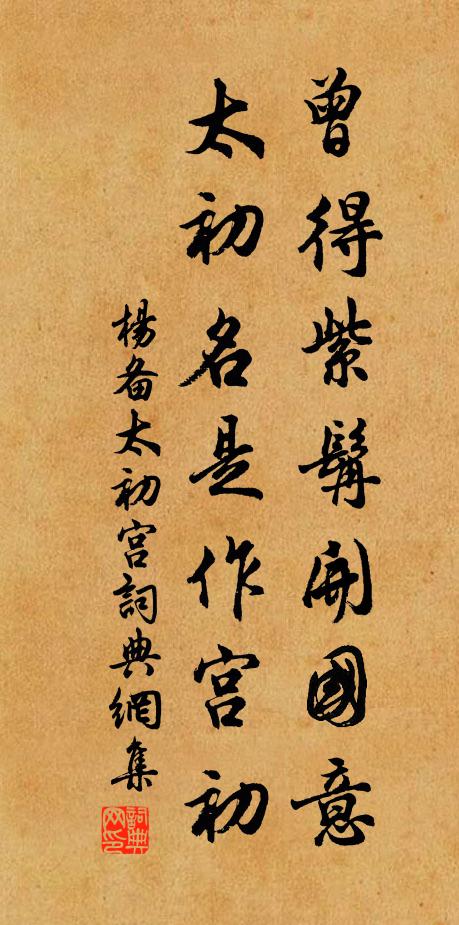 曾得紫髯開國意
太初名是作宫初
楊备太初宫詞典網集
詞典网印